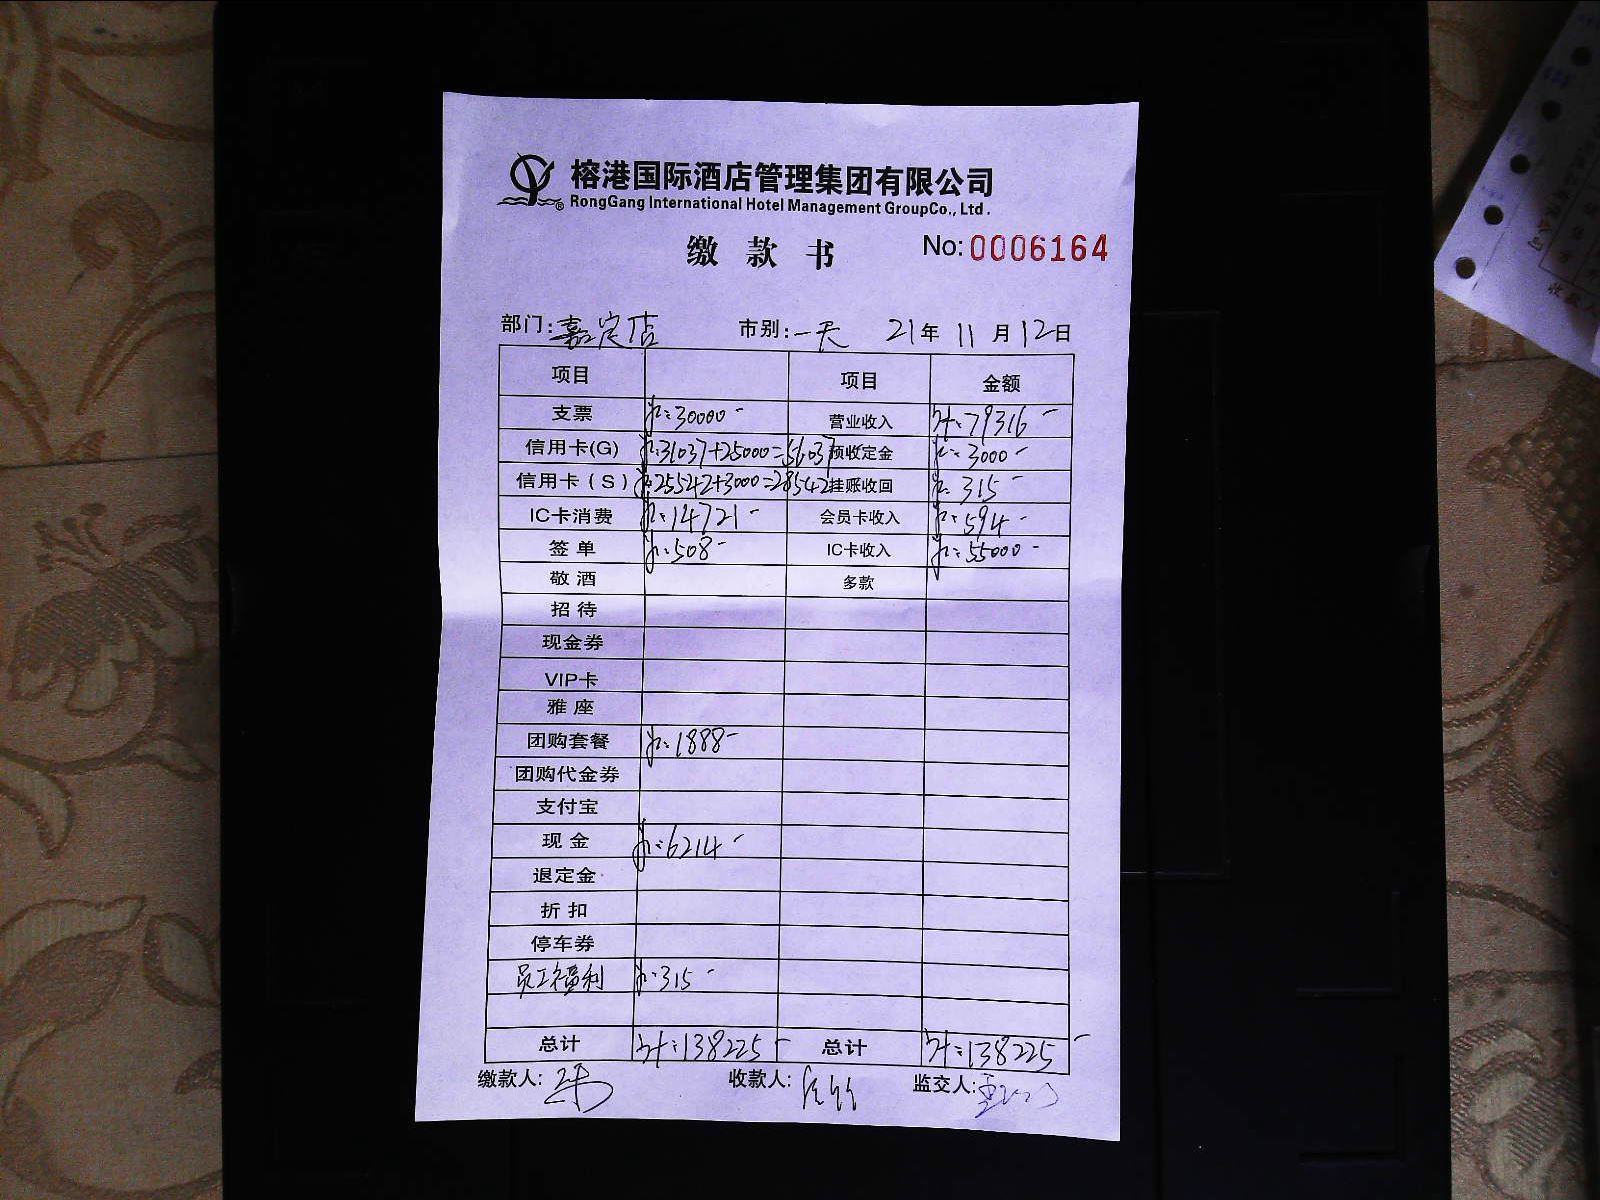 榕港国际酒店管理集团有限公司
RongGang International Hotel Management GroupCo., Ltd.
缴款书 No:0006164
部门:嘉定店 市别:一天 21年11月12日
项目 项目 金额
支票 30000- 营业收入 计:79316-
信用卡(G) 31037+25000=56037 预收定金 3000-
信用卡(S) 25542+3000=28542 挂账收回 315-
IC卡消费 14721- 会员卡收入 594-
签单 508- IC卡收入 55000-
敬酒 多款
招待
现金券
VIP卡
雅座
团购套餐 1888-
团购代金券
支付宝
现金 6214-
退定金
折扣
停车券
员工福利 315-
总计 计:138225- 总计 计:138225-
缴款人: 收款人: 监交人: